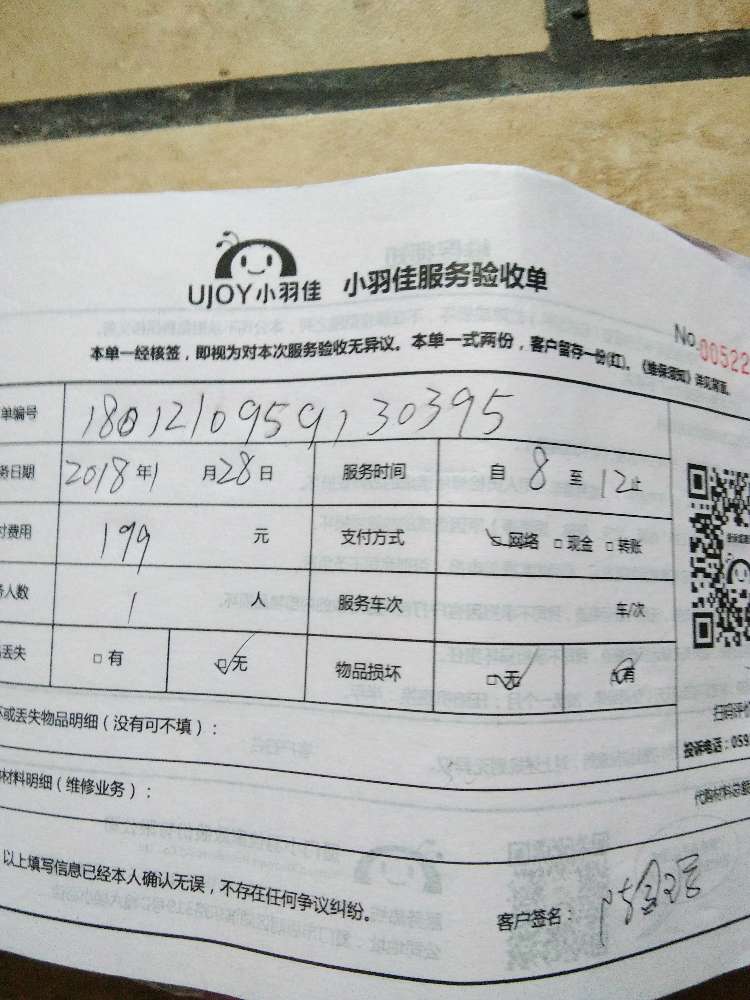 UJOY小羽佳 小羽佳服务验收单
No.00522
本单一经核签，即视为对本次服务验收无异议。本单一式两份，客户留存一份(红)。《维保须知》详见背面。
单编号 1801210959130395
务日期 2018年1月28日 服务时间 自8至12止
付费用 199 元 支付方式 网络 现金 转账
人数 1 人 服务车次 车/次
丢失 有 无 物品损坏 无 有
坏或丢失物品明细（没有可不填）：
扫码评价
投诉电话：059
材料明细（维修业务）：
代购材料总额
以上填写信息已经本人确认无误，不存在任何争议纠纷。
客户签名：